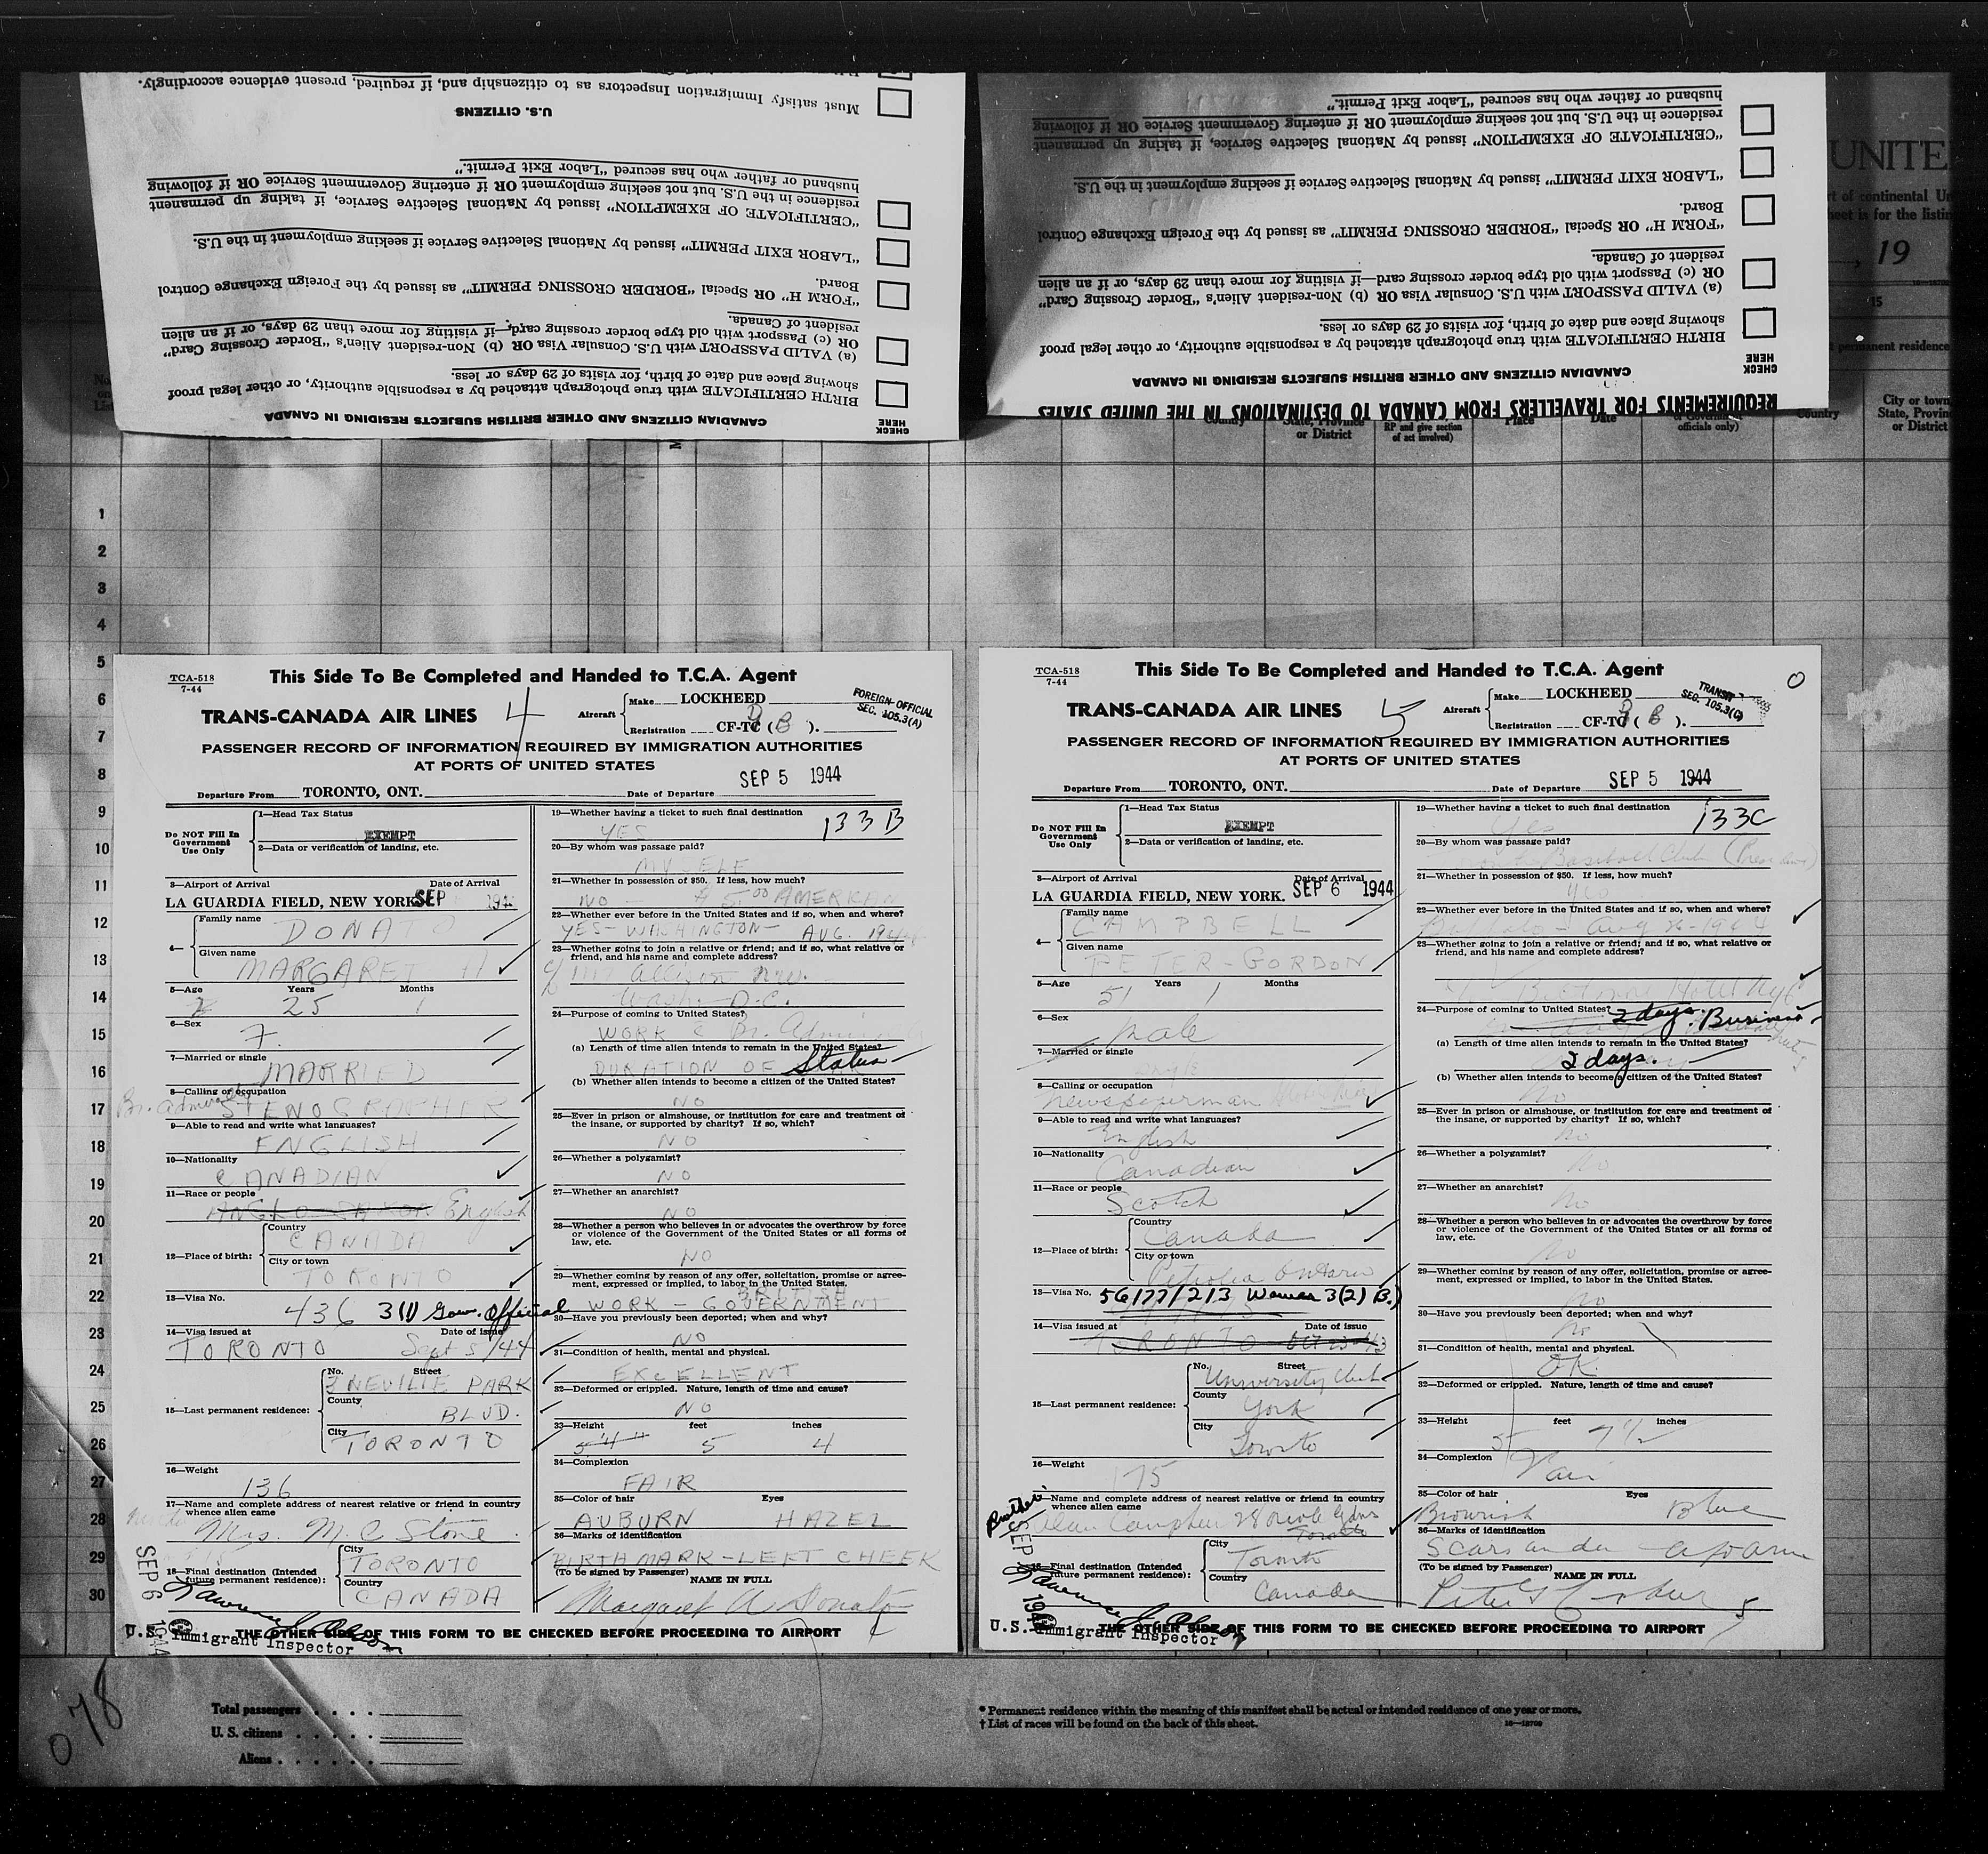 Must satisfy Immigration Inspectors as to citizenship and, if required, present evidence accordingly.
U.S. CITIZENS
husband or father who has secured "Labor Exit Permit."
residence in the U.S. but not seeking employment OR if entering Government Service OR if following
"CERTIFICATE OF EXEMPTION" issued by National Selective Service, if taking up permanent
"LABOR EXIT PERMIT" issued by National Selective Service if seeking employment in the U.S.
Board.
"FORM H" OR Special "BORDER CROSSING PERMIT" as issued by the Foreign Exchange Control
resident of Canada.
OR (c) Passport with old type border crossing card,—if visiting for more than 29 days, or if an alien
(a) VALID PASSPORT with U.S. Consular Visa OR (b) Non-resident Alien's "Border Crossing Card"
showing place and date of birth, for visits of 29 days or less.
BIRTH CERTIFICATE with true photograph attached by a responsible authority, or other legal proof
CANADIAN CITIZENS AND OTHER BRITISH SUBJECTS RESIDING IN CANADA
CHECK
HERE
husband or father who has secured "Labor Exit Permit."
residence in the U.S. but not seeking employment OR if entering Government Service OR if following
"CERTIFICATE OF EXEMPTION" issued by National Selective Service, if taking up permanent
"LABOR EXIT PERMIT" issued by National Selective Service if seeking employment in the U.S.
Board.
"FORM H" OR Special "BORDER CROSSING PERMIT" as issued by the Foreign Exchange Control
resident of Canada.
OR (c) Passport with old type border crossing card—if visiting for more than 29 days, or if an alien
(a) VALID PASSPORT with U.S. Consular Visa OR (b) Non-resident Alien's "Border Crossing Card"
showing place and date of birth, for visits of 29 days or less.
BIRTH CERTIFICATE with true photograph attached by a responsible authority, or other legal proof
CANADIAN CITIZENS AND OTHER BRITISH SUBJECTS RESIDING IN CANADA
CHECK
HERE
REQUIREMENTS FOR TRAVELLERS FROM CANADA TO DESTINATIONS IN THE UNITED STATES
UNITE
rt of continental Un
heet is for the listin
, 19
15
permanent residence
Country
State, Province
or District
RP and give section
of act involved)
Place
Date
officials only)
Country
City or town
State, Provin
or District
1
2
3
4
5
6
7
8
9
10
11
12
13
14
15
16
17
18
19
20
21
22
23
24
25
26
27
28
29
30
TCA-518
7-44
This Side To Be Completed and Handed to T.C.A. Agent
TRANS-CANADA AIR LINES 4
Aircraft
Make LOCKHEED
Registration CF-TC (B).
FOREIGN OFFICIAL
SEC. 105.3(A)
PASSENGER RECORD OF INFORMATION REQUIRED BY IMMIGRATION AUTHORITIES
AT PORTS OF UNITED STATES
Departure From TORONTO, ONT. Date of Departure SEP 5 1944
Do NOT Fill In
Government
Use Only
1—Head Tax Status
EXEMPT
2—Data or verification of landing, etc.
3—Airport of Arrival Date of Arrival
LA GUARDIA FIELD, NEW YORK. SEP
4—
Family name
Given name
MARGARET A
5—Age Years Months
25 1
6—Sex
F.
7—Married or single
MARRIED
8—Calling or occupation
STENOGRAPHER
9—Able to read and write what languages?
ENGLISH
10—Nationality
CANADIAN
11—Race or people
ANGLO-SAXON English
12—Place of birth:
Country
CANADA
City or town
TORONTO
13—Visa No.
436 3(1) Gov. Official
14—Visa issued at Date of issue
TORONTO Sept 5/44
15—Last permanent residence:
No. Street
NEVILLE PARK
County
BLVD.
City
TORONTO
16—Weight
136
17—Name and complete address of nearest relative or friend in country
whence alien came
Mrs. M. C. Stone
18—Final destination (Intended
future permanent residence):
City
TORONTO
Country
CANADA
19—Whether having a ticket to such final destination
YES 133 B
20—By whom was passage paid?
MYSELF
21—Whether in possession of $50. If less, how much?
NO — AMERICAN
22—Whether ever before in the United States and if so, when and where?
YES—WASHINGTON— AUG. 1944
23—Whether going to join a relative or friend; and if so, what relative or
friend, and his name and complete address?
Wash. D.C.
24—Purpose of coming to United States?
WORK
(a) Length of time alien intends to remain in the United States?
DURATION OF Status
(b) Whether alien intends to become a citizen of the United States?
NO
25—Ever in prison or almshouse, or institution for care and treatment of
the insane, or supported by charity? If so, which?
NO
26—Whether a polygamist?
NO
27—Whether an anarchist?
NO
28—Whether a person who believes in or advocates the overthrow by force
or violence of the Government of the United States or all forms of
law, etc.
NO
29—Whether coming by reason of any offer, solicitation, promise or agree-
ment, expressed or implied, to labor in the United States.
BRITISH
WORK — GOVERNMENT
30—Have you previously been deported; when and why?
NO
31—Condition of health, mental and physical.
EXCELLENT
32—Deformed or crippled. Nature, length of time and cause?
NO
33—Height feet inches
5'4" 5 4
34—Complexion
FAIR
35—Color of hair Eyes
AUBURN HAZEL
36—Marks of identification
BIRTHMARK—LEFT CHEEK
(To be signed by Passenger) NAME IN FULL
Margaret A Donato
SEP 6 1944
U.S. Immigrant Inspector
THE OTHER SIDE OF THIS FORM TO BE CHECKED BEFORE PROCEEDING TO AIRPORT
TCA-518
7-44
This Side To Be Completed and Handed to T.C.A. Agent
TRANS-CANADA AIR LINES 5
Aircraft
Make LOCKHEED
Registration CF-TC (B).
TRANSIT
SEC. 105.3(C)
PASSENGER RECORD OF INFORMATION REQUIRED BY IMMIGRATION AUTHORITIES
AT PORTS OF UNITED STATES
Departure From TORONTO, ONT. Date of Departure SEP 5 1944
Do NOT Fill In
Government
Use Only
1—Head Tax Status
EXEMPT
2—Data or verification of landing, etc.
3—Airport of Arrival Date of Arrival
LA GUARDIA FIELD, NEW YORK. SEP 6 1944
4—
Family name
CAMPBELL
Given name
PETER-GORDON
5—Age Years Months
51 1
6—Sex
male
7—Married or single
single
8—Calling or occupation
Newspaperman
9—Able to read and write what languages?
English
10—Nationality
Canadian
11—Race or people
Scotch
12—Place of birth:
Country
Canada
City or town
Petrolia Ontario
13—Visa No. 56177/213 Waiver 3(2) B.
14—Visa issued at Date of issue
TORONTO
15—Last permanent residence:
No. Street
University Club
County
York
City
Toronto
16—Weight
175
Brother
17—Name and complete address of nearest relative or friend in country
whence alien came
Toronto
18—Final destination (Intended
future permanent residence):
City
Toronto
Country
Canada
19—Whether having a ticket to such final destination
Yes 133C
20—By whom was passage paid?
Baseball Club
21—Whether in possession of $50. If less, how much?
Yes
22—Whether ever before in the United States and if so, when and where?
Buffalo — Aug
23—Whether going to join a relative or friend; and if so, what relative or
friend, and his name and complete address?
24—Purpose of coming to United States?
2 days. Business
(a) Length of time alien intends to remain in the United States?
2 days.
(b) Whether alien intends to become a citizen of the United States?
No
25—Ever in prison or almshouse, or institution for care and treatment of
the insane, or supported by charity? If so, which?
No
26—Whether a polygamist?
No
27—Whether an anarchist?
No
28—Whether a person who believes in or advocates the overthrow by force
or violence of the Government of the United States or all forms of
law, etc.
No
29—Whether coming by reason of any offer, solicitation, promise or agree-
ment, expressed or implied, to labor in the United States.
No
30—Have you previously been deported; when and why?
No
31—Condition of health, mental and physical.
OK
32—Deformed or crippled. Nature, length of time and cause?
33—Height feet inches
5 7½
34—Complexion
Fair
35—Color of hair Eyes
Brownish Blue
36—Marks of identification
Scars under
(To be signed by Passenger) NAME IN FULL
5
U.S. Immigrant Inspector
THE OTHER SIDE OF THIS FORM TO BE CHECKED BEFORE PROCEEDING TO AIRPORT
078
Total passengers
U. S. citizens
Aliens
* Permanent residence within the meaning of this manifest shall be actual or intended residence of one year or more.
† List of races will be found on the back of this sheet.